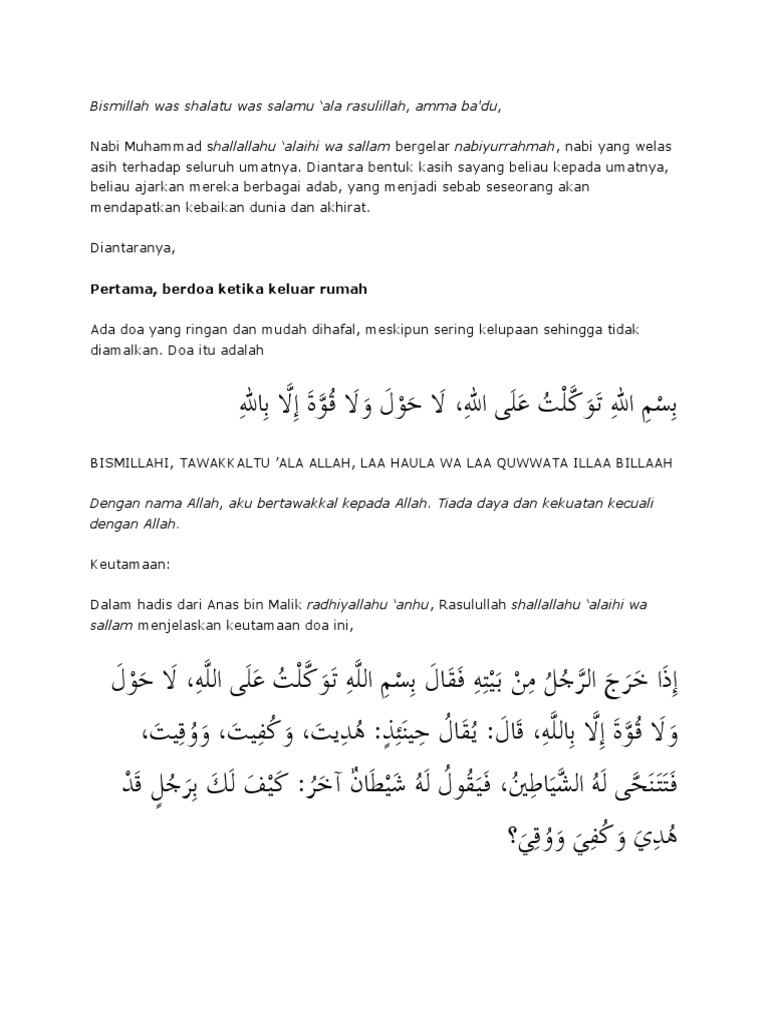 Bismillah was shalatu was salamu ‘ala rasulillah, amma ba'du,
Nabi Muhammad shallallahu ‘alaihi wa sallam bergelar nabiyurrahmah, nabi yang welas
asih terhadap seluruh umatnya. Diantara bentuk kasih sayang beliau kepada umatnya,
beliau ajarkan mereka berbagai adab, yang menjadi sebab seseorang akan
mendapatkan kebaikan dunia dan akhirat.
Diantaranya,
Pertama, berdoa ketika keluar rumah
Ada doa yang ringan dan mudah dihafal, meskipun sering kelupaan sehingga tidak
diamalkan. Doa itu adalah
بِسْمِ اللهِ تَوَكَّلْتُ عَلَى اللهِ، لَا حَوْلَ وَلَا قُوَّةَ إِلَّا بِاللهِ
BISMILLAHI, TAWAKKALTU ’ALA ALLAH, LAA HAULA WA LAA QUWWATA ILLAA BILLAAH
Dengan nama Allah, aku bertawakkal kepada Allah. Tiada daya dan kekuatan kecuali
dengan Allah.
Keutamaan:
Dalam hadis dari Anas bin Malik radhiyallahu ‘anhu, Rasulullah shallallahu ‘alaihi wa
sallam menjelaskan keutamaan doa ini,
إِذَا خَرَجَ الرَّجُلُ مِنْ بَيْتِهِ فَقَالَ بِسْمِ اللَّهِ تَوَكَّلْتُ عَلَى اللَّهِ، لَا حَوْلَ
وَلَا قُوَّةَ إِلَّا بِاللَّهِ، قَالَ: يُقَالُ حِينَئِذٍ: هُدِيتَ، وَكُفِيتَ، وَوُقِيتَ،
فَتَتَنَحَّى لَهُ الشَّيَاطِينُ، فَيَقُولُ لَهُ شَيْطَانٌ آخَرُ: كَيْفَ لَكَ بِرَجُلٍ قَدْ
هُدِيَ وَكُفِيَ وَوُقِيَ؟